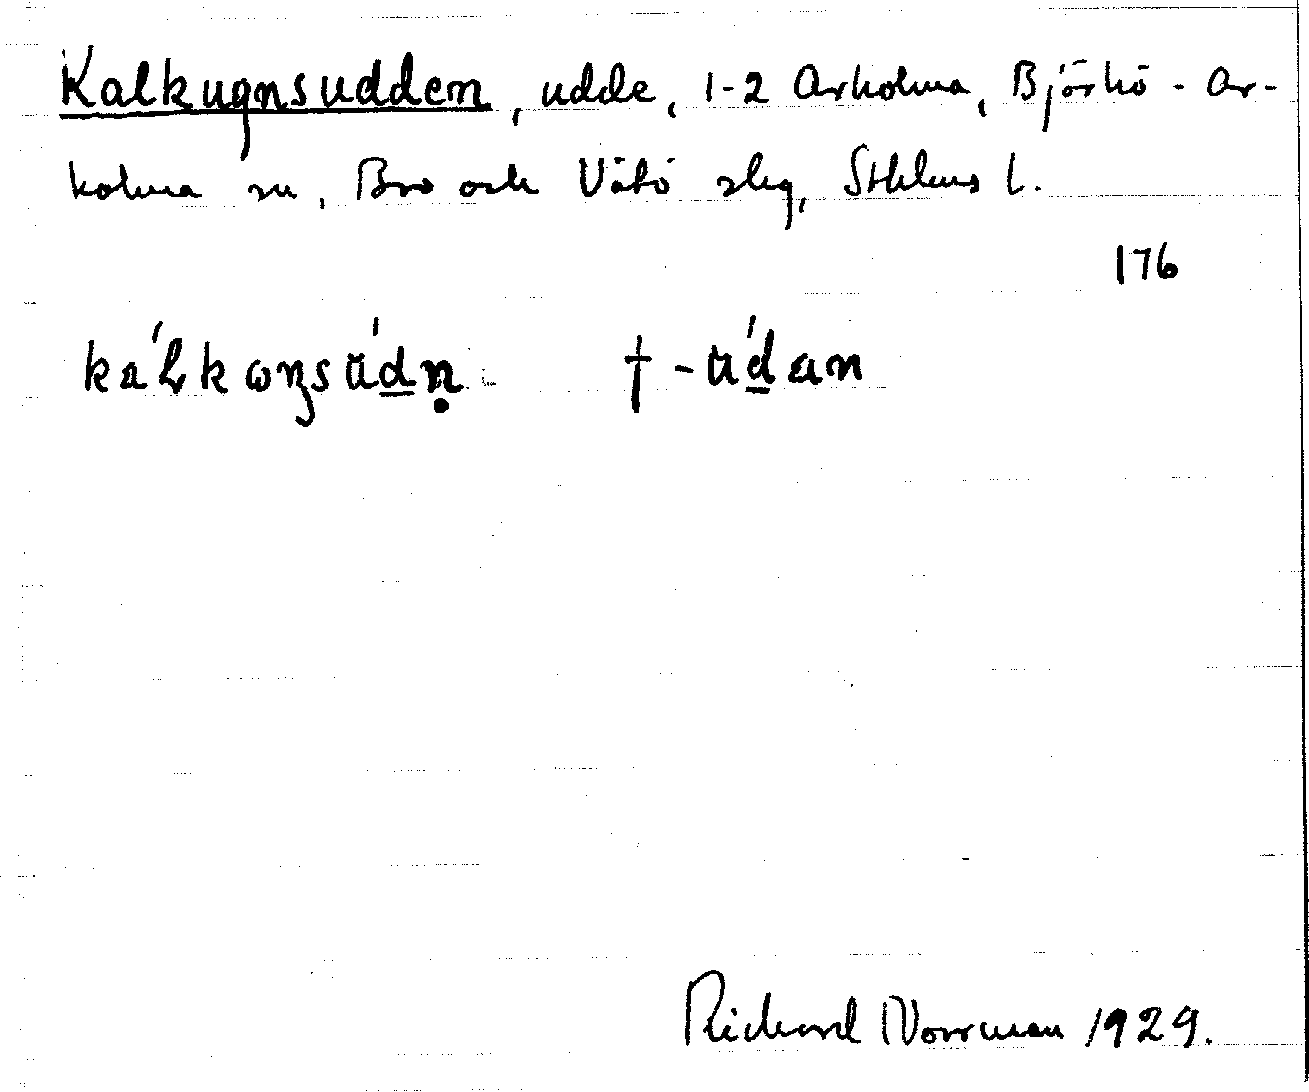 Kalkugnsudden, udde, 1-2 Arholma, Björkö-Ar-
holma sn, Bro och Vätö slg, Sthlms l.
176
† -ud̲an
Richard Norrman 1929.